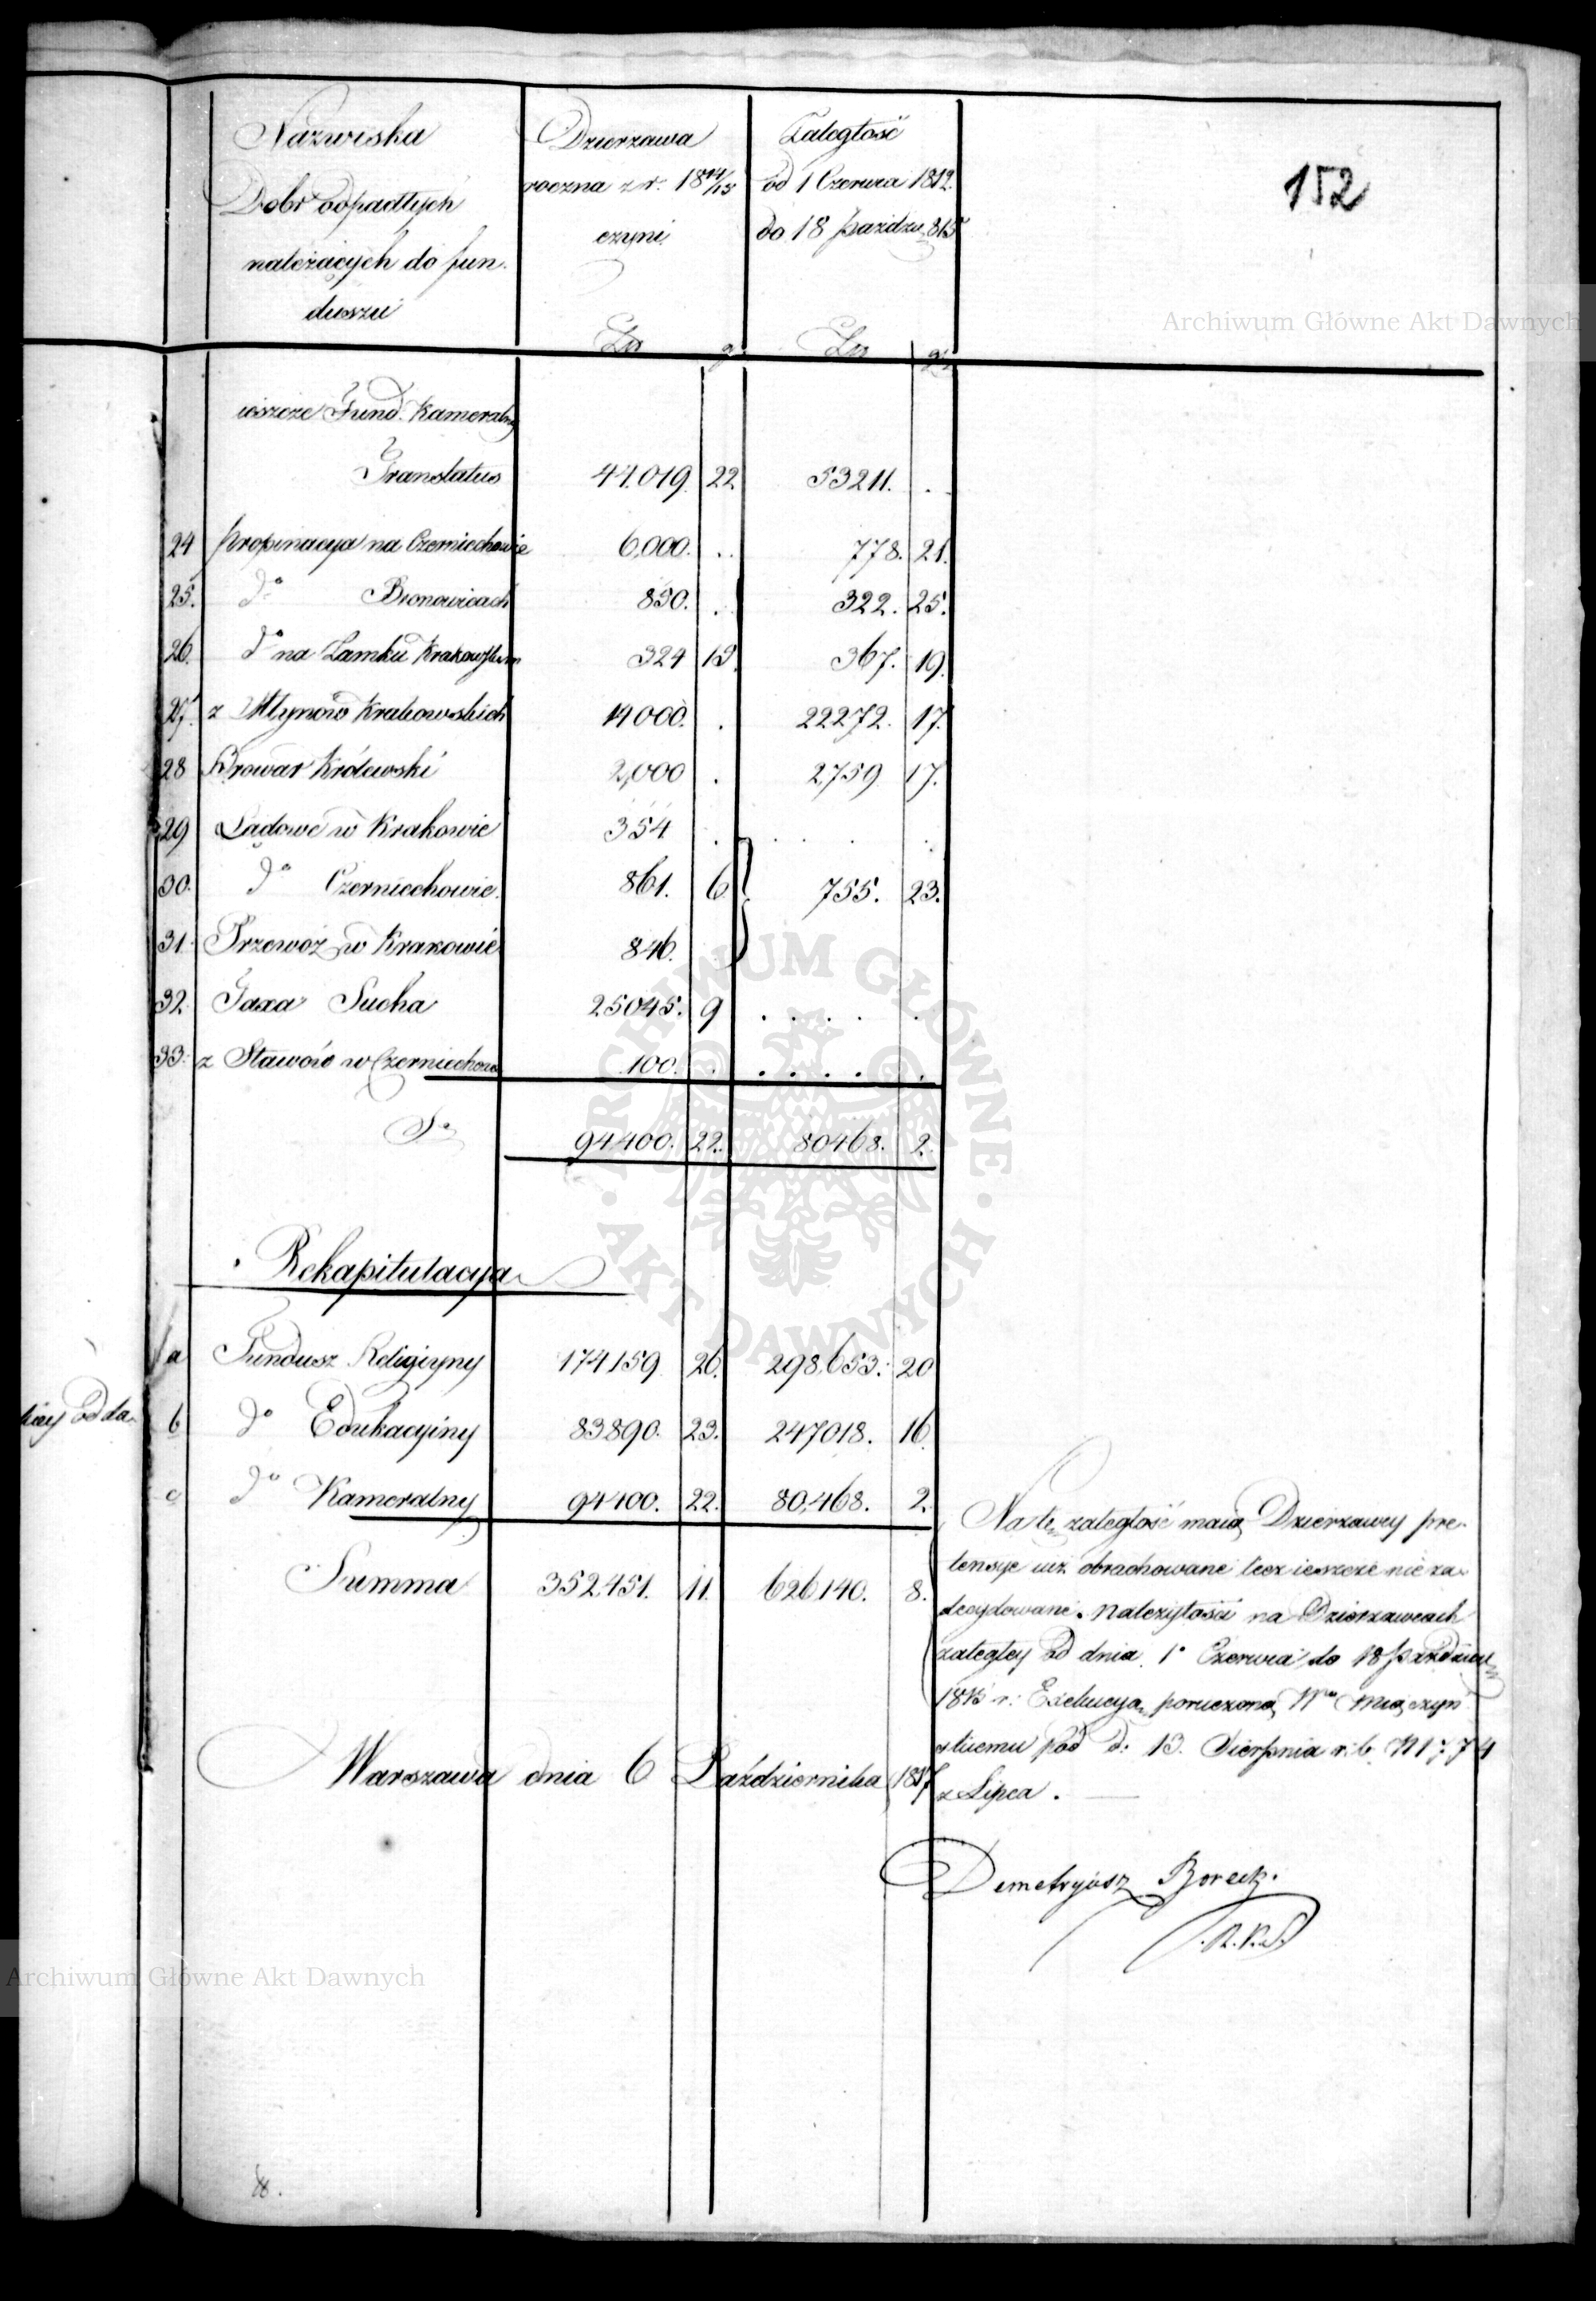 152
Nazwiska
Dobr odpadłych
należących do fun-
duszu
Dzierzawa
roczna z r. 18 14/15
czyni
Złp
gr
Zaległość
od 1 Czerwca 1812.
do 18 paźdz. 815
Złp
gr
ieszcze Fund. Kameralny
Translatus 44.019. 22 53211. .
24 propinacya na Czerniechowie 6,000. .. 778. 21.
25. do Bronowicach 830. . 322. 25.
26. do na Zamku Krakowskim 324 15. 367. 19.
27. z Młynów Krakowskich 14000. . 22272. 17.
28 Browar Królewski 2,000 . 2,759 17.
29 Lądowe w Krakowie 354 . . . . .
30. do Czerniechowie. 861. 6 755. 23.
31. Przewoz w Krakowie 846. .
32. Taxa Sucha 25045. 9 . . . . .
33. z Stawów w Czerniechow 100. . . . . . .
Sa 94400. 22. 80468. 2.
Rekapitulacya
a Fundusz Religiyny 174159 26. 298,653. 20
b do Edukacyiny 83890. 23. 247018. 16.
c do Kameralny 94400. 22. 80,468. 2.
Summa 352,451. 11. 626,140. 8.
od da-
Na tę zaległość maią Dzierzawcy pre-
tensye iuż obrachowane lecz ieszcze nie za-
decydowane. Należytości na Dzierzawcach
zaległey od dnia 1o Czerwca do 18 październ
1815 r. Exekucya poruczona Wmu Miączyn
skiemu pod d: 13. Sierpnia r. b. N 1774
z Lipca.
Warszawa dnia 6 Października 1817
Demetryusz Borecki
Archiwum Główne Akt Dawnych
Archiwum Główne Akt Dawnych
ARCHIWUM GŁÓWNE AKT DAWNYCH